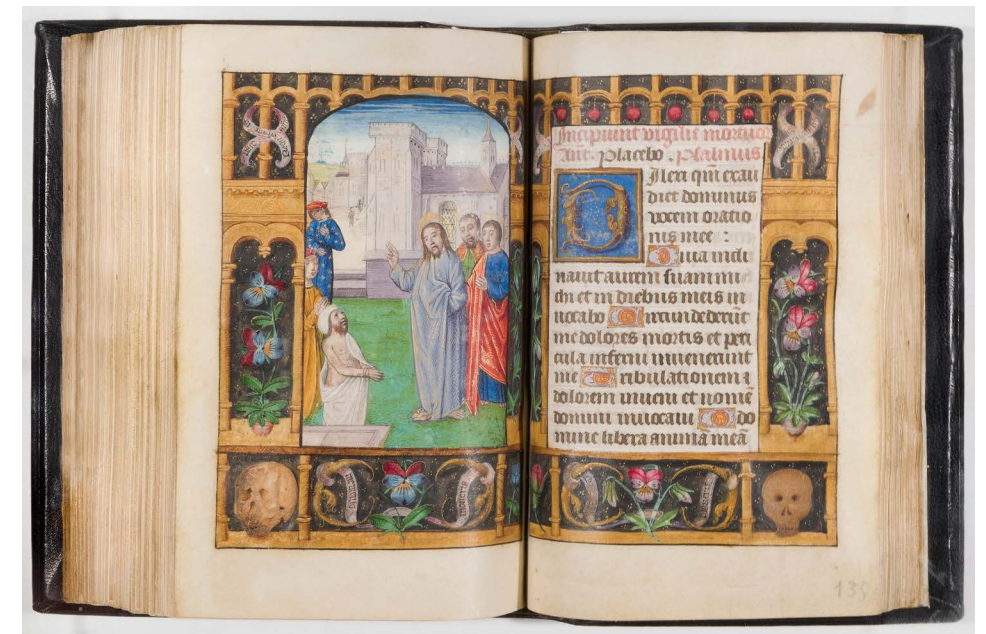 Incipiunt vigilie mortuor
Ant. Placebo. Psalmus
Dilexi qm̄ exau
diet dominus
vocem oratio
nis mee :
Quia incli
nauit aurem suam mi
chi et in diebus meis in
uocabo Circundederūt
me dolores mortis et peri
cula inferni inuenerunt
me Tribulationem ⁊
dolorem inueni et nomē
domini inuocaui O do
mine libera animā meā
135